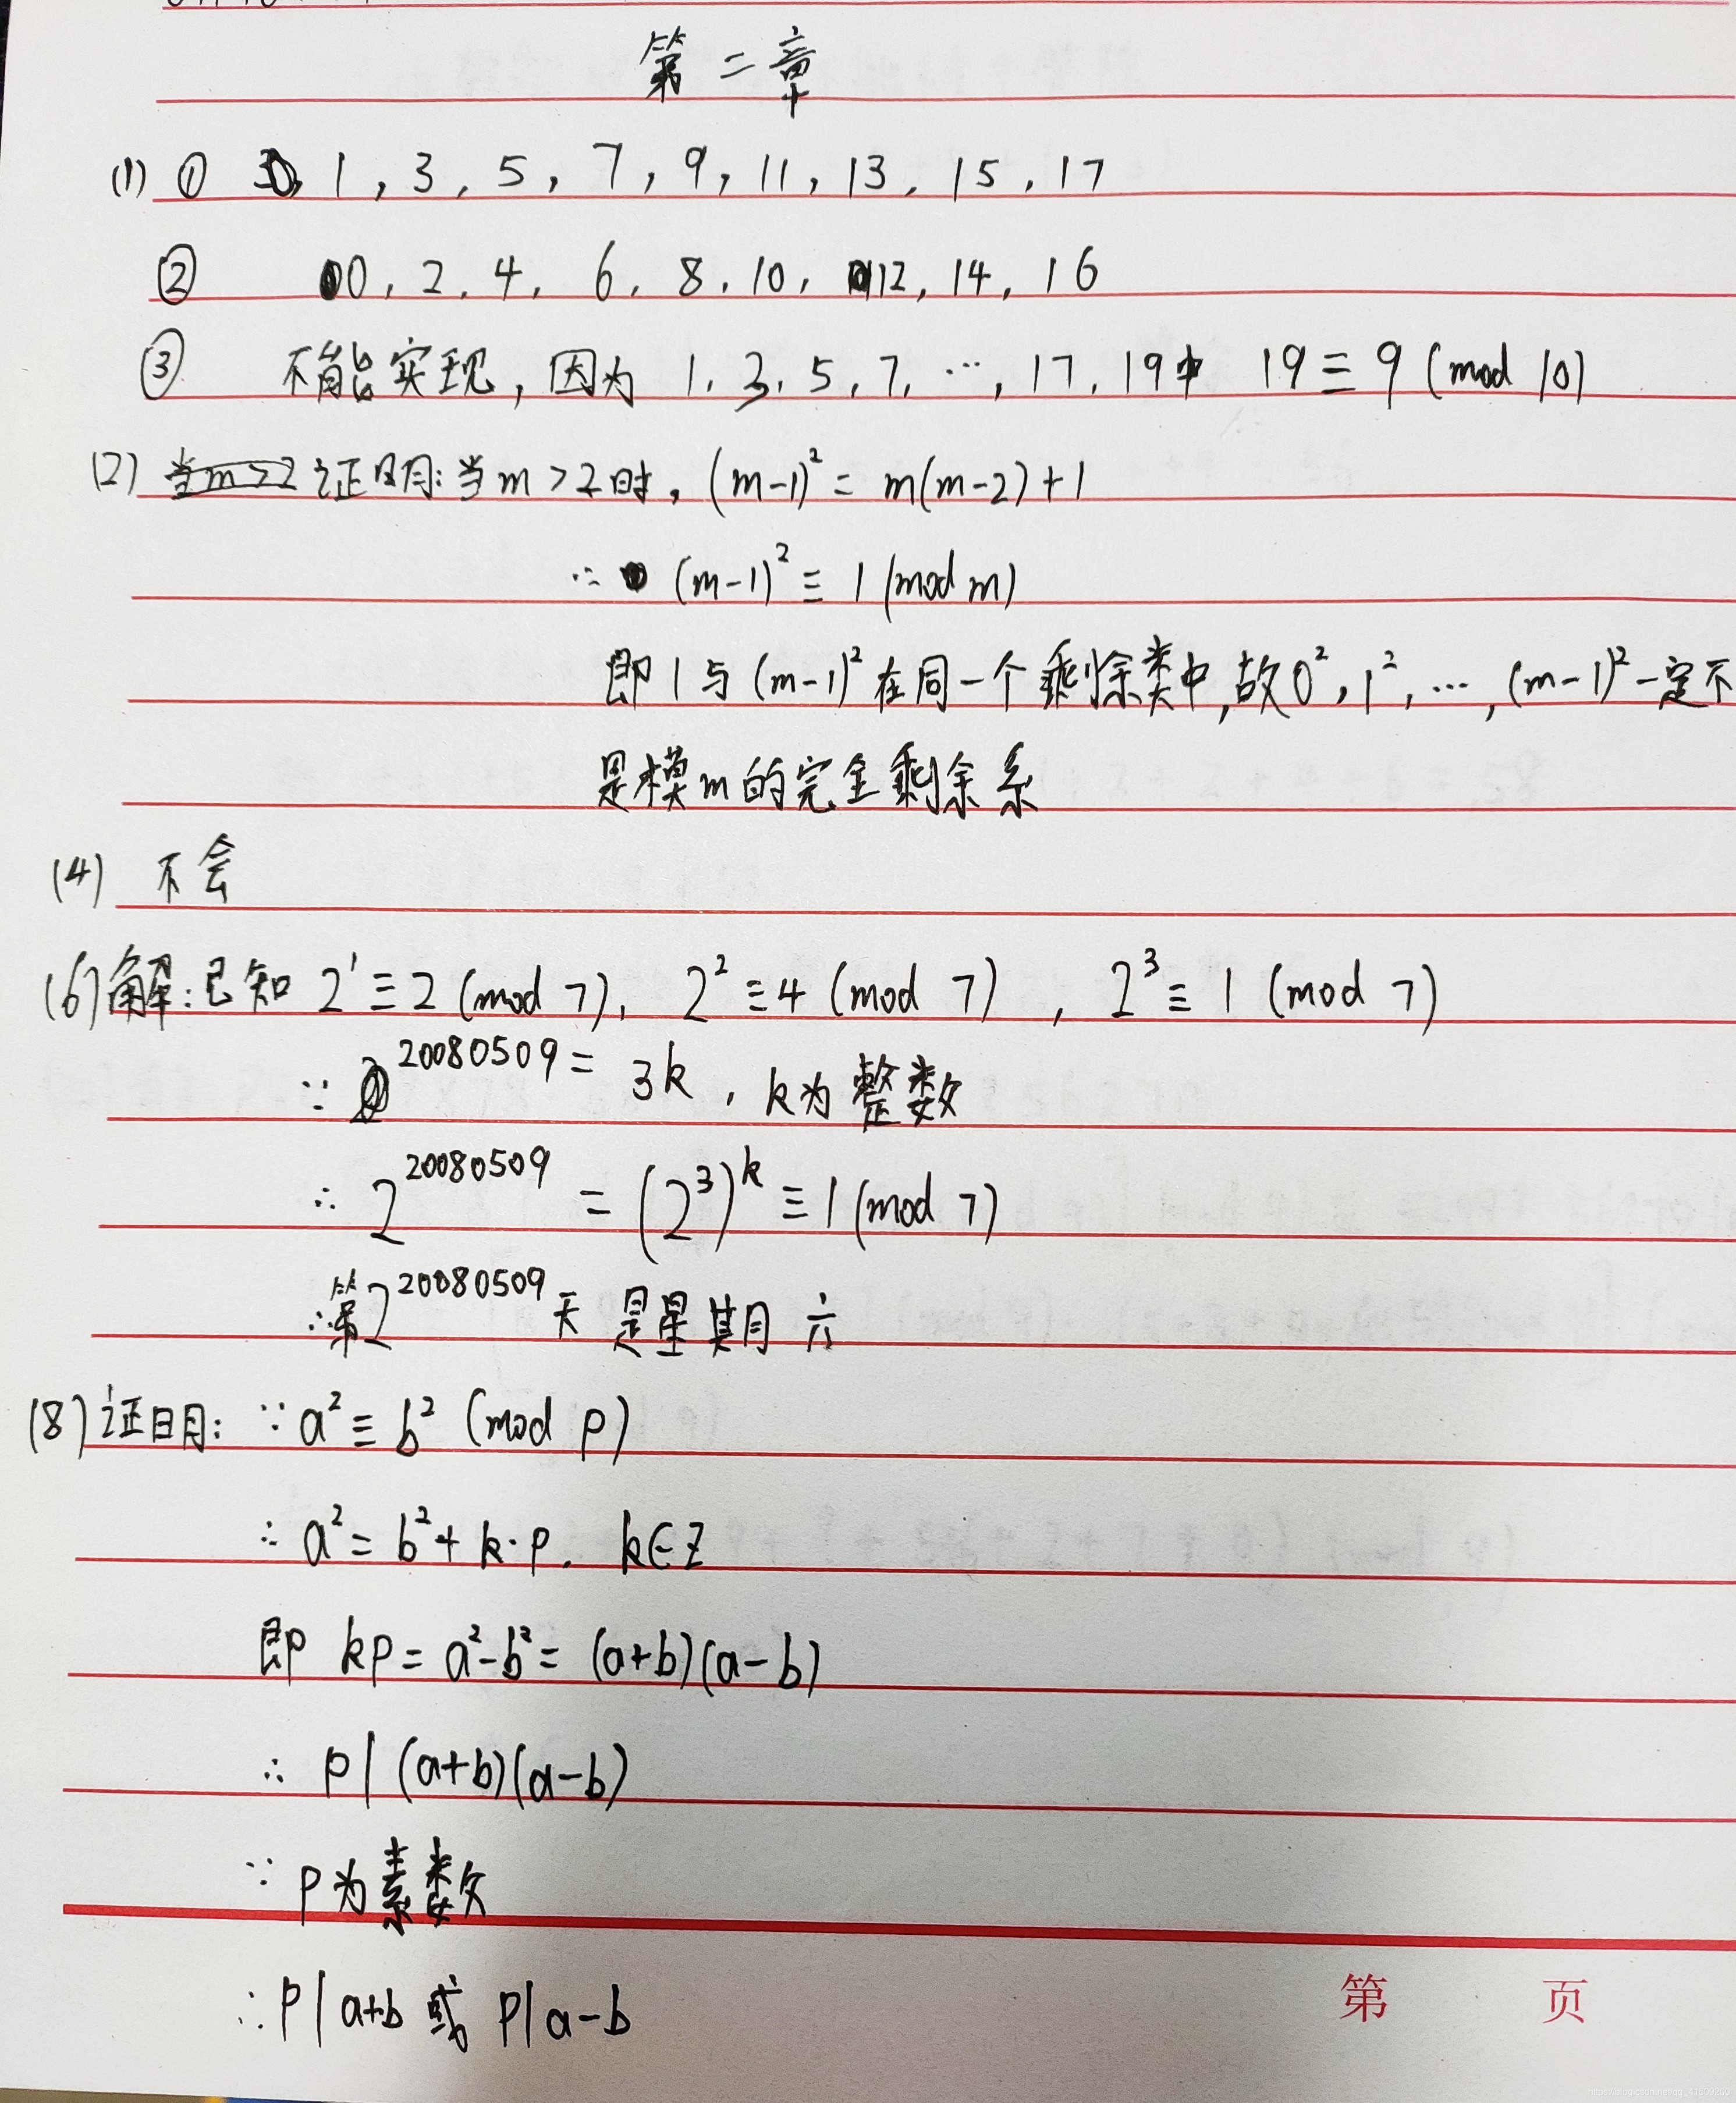 第二章
(1) ① 1, 3, 5, 7, 9, 11, 13, 15, 17
② 0, 2, 4, 6, 8, 10, 12, 14, 16
③ 不能实现, 因为 1, 3, 5, 7, …, 17, 19中 19≡9 (mod 10)
(2) 当m>2 证明: 当m>2时, (m-1)²= m(m-2)+1
∴ (m-1)²≡ 1 (mod m)
即1与(m-1)²在同一个剩余类中, 故0², 1², …, (m-1)²一定不
是模m的完全剩余系
(4) 不会
(6) 解: 已知 2¹≡2 (mod 7), 2²≡4 (mod 7), 2³≡1 (mod 7)
∵ 20080509 = 3k, k为整数
∴ 2²⁰⁰⁸⁰⁵⁰⁹ = (2³)ᵏ ≡1 (mod 7)
∴第2²⁰⁰⁸⁰⁵⁰⁹天是星期六
(8) 证明: ∵ a²≡b² (mod p)
∴ a²= b²+k·p, k∈Z
即 kp= a²-b²= (a+b)(a-b)
∴ p | (a+b)(a-b)
∵ p为素数
∴ p | a+b 或 p | a-b
第 页